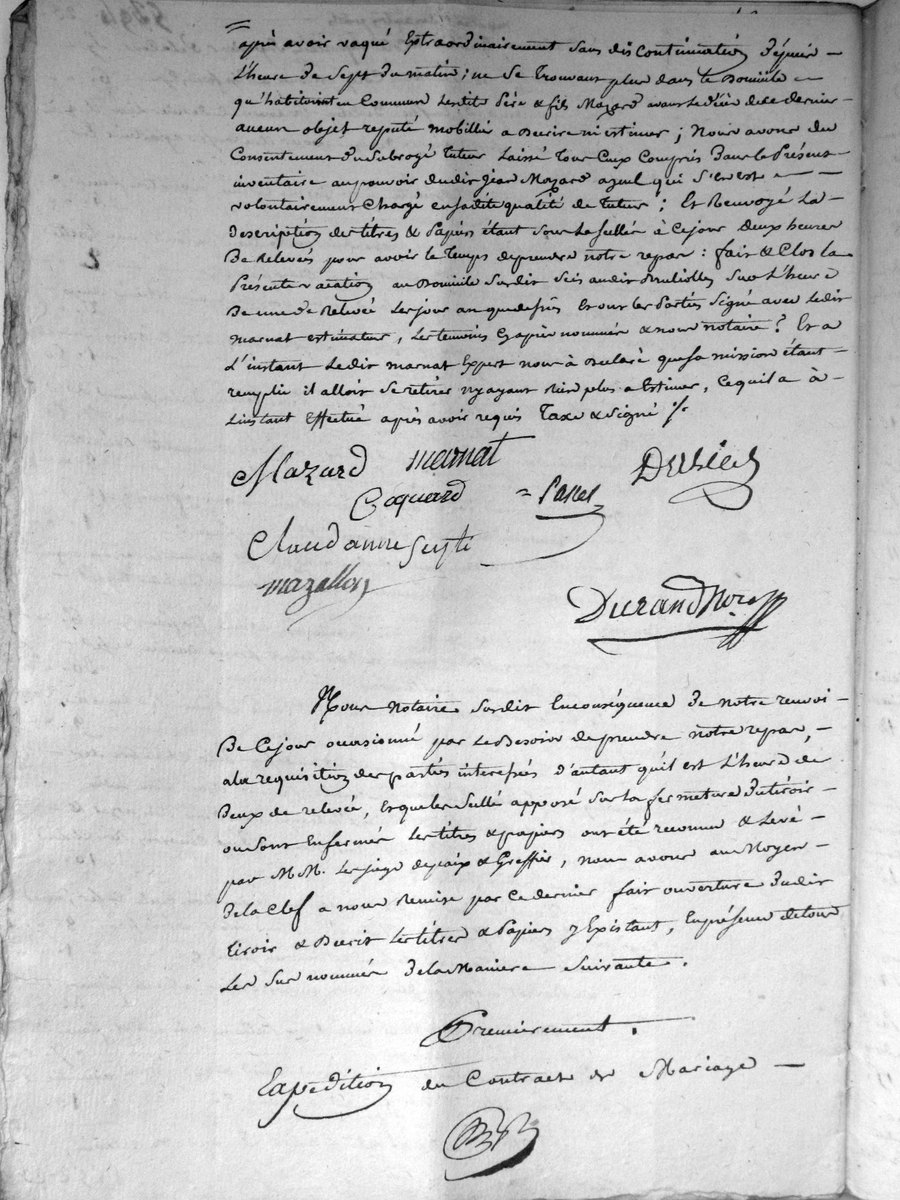 après avoir vaqué Extraordinairement sans discontinuation depuis
L'heure de Sept du matin; ne se trouvant plus dans le Domicile
qu'habitoient en Commun Lesdits Père & fils Mazard avant le décès de ce dernier
aucun objet reputé mobillier a Décrire ni estimer; Nous avons du
Consentement du Subrogé tuteur Laissé Tous Ceux Compris dans le Présent
inventaire au pouvoir dudit Jean Mazard ayeul qui s'en est
volontairement Chargé en sadite qualité de tuteur; Et Renvoyé La
Description des titres & Papiers étant Sous Le Scellé à Cejour deux heures
De Relevée pour avoir le Temps de prendre notre repas: fait & Clos la
Présente vacation au Domicile susdit Sis audit Sur L'heure
De une de Relevée Les jour an que dessus Et ont les Parties Signé avec Ledit
marnat estimateur, Les temoins Cy après nommés & nous notaire? Et a
L'instant Ledit marnat Expert nous à Déclaré que sa mission étant
remplie il alloit se retirer n'y ayant Rien plus a Estimer, Ce qu'il a à
L'instant Effectué après avoir requis Taxe & Signé
Mazard marnat
Coquard
Claud anne
mazallon
Durand Nore
Nous Notaire susdit En conséquence de notre renvoi
De Cejour occasionné par Le Besoin de prendre notre repas,
a la requisition des parties interessées d'autant qu'il est L'heure de
Deux de relevée, Et que le Scellé apposé Sur La fermeture du tiroir
ou sont Enfermés Les titres & papiers ont été reconnu & Levé
par M.M. Les juge de paix & Greffier, nous avons au Moyen
de la Clef a nous Remise par ce dernier fait ouverture dudit
tiroir & Décrit Les titres & Papiers y Existant, En présence de tous
Les Sus nommés de la Maniere Suivante.
Premierement.
Expedition du Contract de Mariage